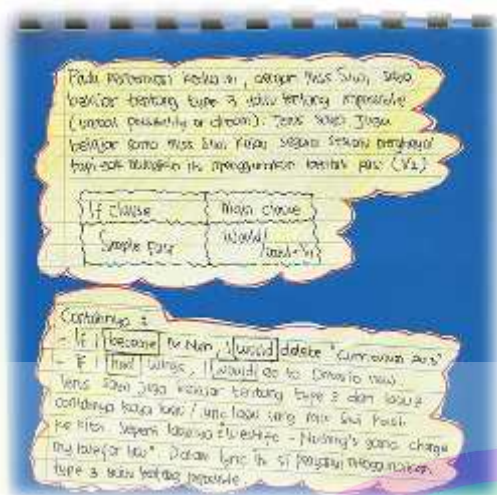 Pada pertemuan kedua ini, dengan Miss Siwi, saya
belajar tentang type 3 yaitu tentang impossible
(unreal possibility or dream). Terus saya juga
belajar sama Miss Siwi kalau segala sesuatu
tapi gak mungkin itu menggunakan bentuk past (V2)
If clause Main clause
Simple Past would/
Contohnya :
- If I became , I would delete "curriculum
- If I had wings, I would go to Ontario now
Terus saya juga belajar tentang type 3 dari lagu2
contohnya kaya lagu / lyric lagu yang Miss Siwi
ke kita. Seperti lagunya "Westlife - Nothing's gonna change
my love for you". Dalam lyric itu si penyanyi menggunakan
type 3 yaitu tentang impossible